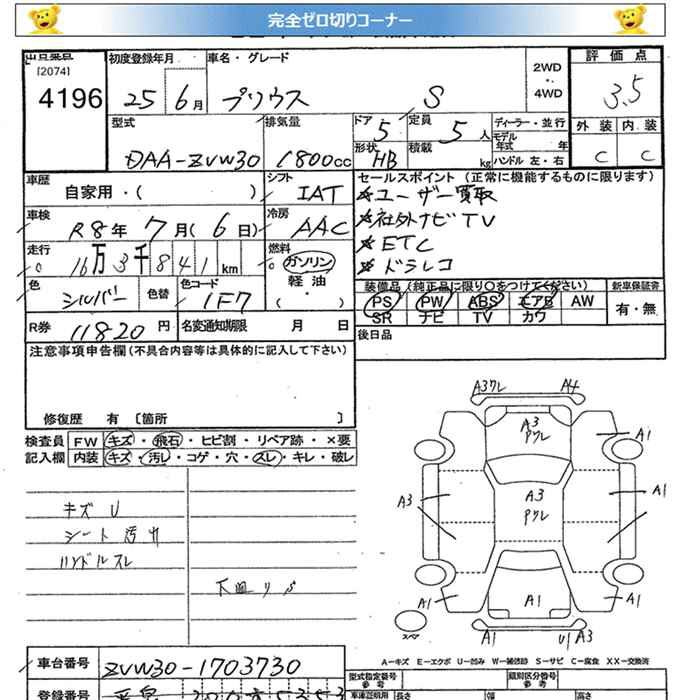 完全ゼロ切りコーナー
出品番号 [2074] 4196
初度登録年月 25 6月
車名・グレード プリウス S
2WD・4WD
評価点 3.5
外装 内装
C C
型式 DAA-ZVW30
排気量 1800cc
ドア 5
定員 5人
形状 HB
積載 kg
ディーラー・並行
モデル年式 年
ハンドル 左・右
車歴 自家用・( )
シフト IAT
車検 R8年 7月(6日)
冷房 AAC
走行 16万3千841km
燃料 ガソリン 軽油 ( ・ )
色 シルバー 色替
色コード 1F7
R券 11820円
名変通知期限 月 日
セールスポイント (正常に機能するものに限ります)
★ユーザー買取
★社外ナビTV
★ETC
★ドラレコ
装備品(純正品に限り○をつけてください)
PS PW ABS エアB AW
SR ナビ TV カワ
新車保証書
有・無
後日品
注意事項申告欄(不具合内容等は具体的に記入して下さい)
修復歴 有 〔箇所 〕
検査員 FW キズ・飛石・ヒビ割・リペア跡・×要
記入欄 内装 キズ・汚レ・コゲ・穴・スレ・キレ・破レ
キズ U
シート汚レ
ハンドルスレ
A3ワレ A4
A3 Pワレ
A1
A3
A3 Pワレ
A1
A1
A1
A1
スペア
A1 U1 A3
A-キズ E-エクボ U-凹み W-補修跡 S-サビ C-腐食 XX-交換済
車台番号 ZVW30-1703730
登録番号
型式指定番号 参考
類別区分番号 参考
車庫証明用 長さ 幅 高さ